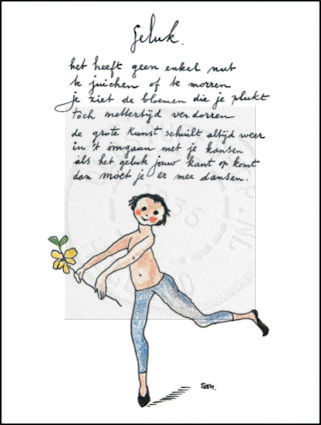 Geluk.
het heeft geen enkel nut
te juichen of te morren
je ziet de bloemen die je plukt
toch mettertijd verdorren
de grote kunst schuilt altijd weer
in 't omgaan met je kansen
als het geluk jouw kant op komt
dan moet je er mee dansen.